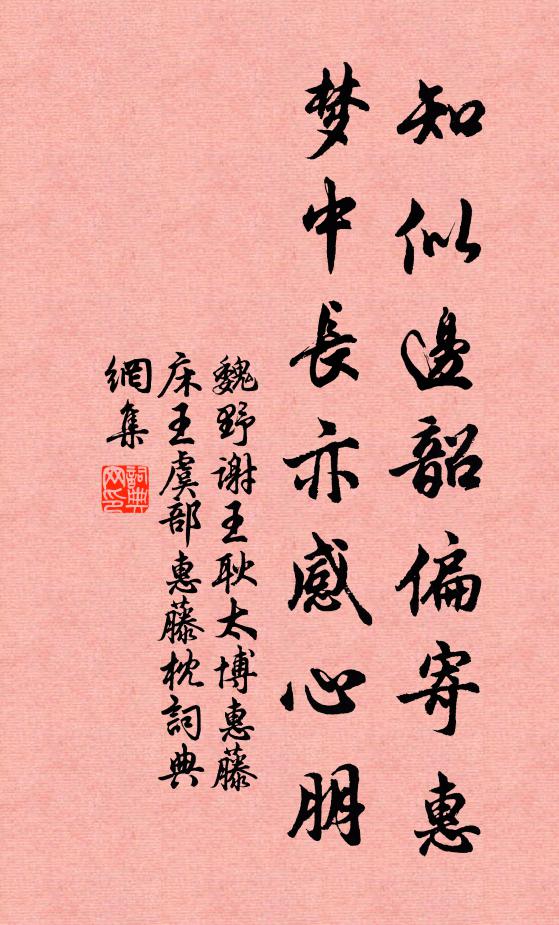 知似邊韶偏寄惠
梦中長亦感心朋
魏野谢王耿太博惠藤
床王虞部惠藤枕詞典
網集
詞典網印